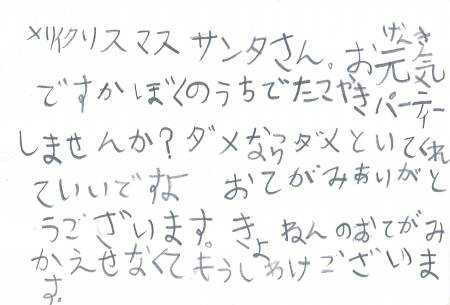 メリイクリスマス サンタさん。お元気
ですかぼくのうちでたこやきパーティー
しませんか?ダメならダメといてくれ
ていいですよ おてがみありがと
うございます。きょねんのおてがみ
かえせなくてもうしわけございま
す。